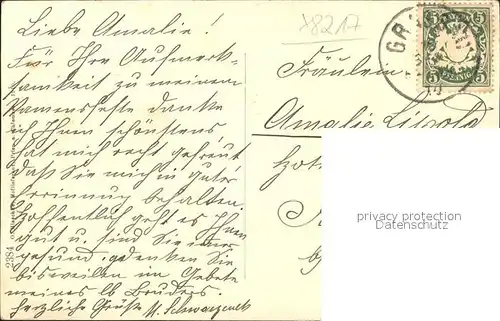 Liebe Amalie!
Für Ihre Aufmerk-
samkeit zu meinem
Namensfeste danke
ich Ihnen schönstens
hat mich recht gefreut
daß Sie mich in guter
Erinnerung behalten.
Hoffentlich geht es Ihnen
gut u. sind Sie immer
gesund. gedenken Sie
bisweilen im Gebete
meines lb Bruders.
herzliche Grüße M. Schwarzenek
X8217
GR
5 5
5 PFENNIG 5
Fräulein
Amalie
2384
privacy protection
Datenschutz